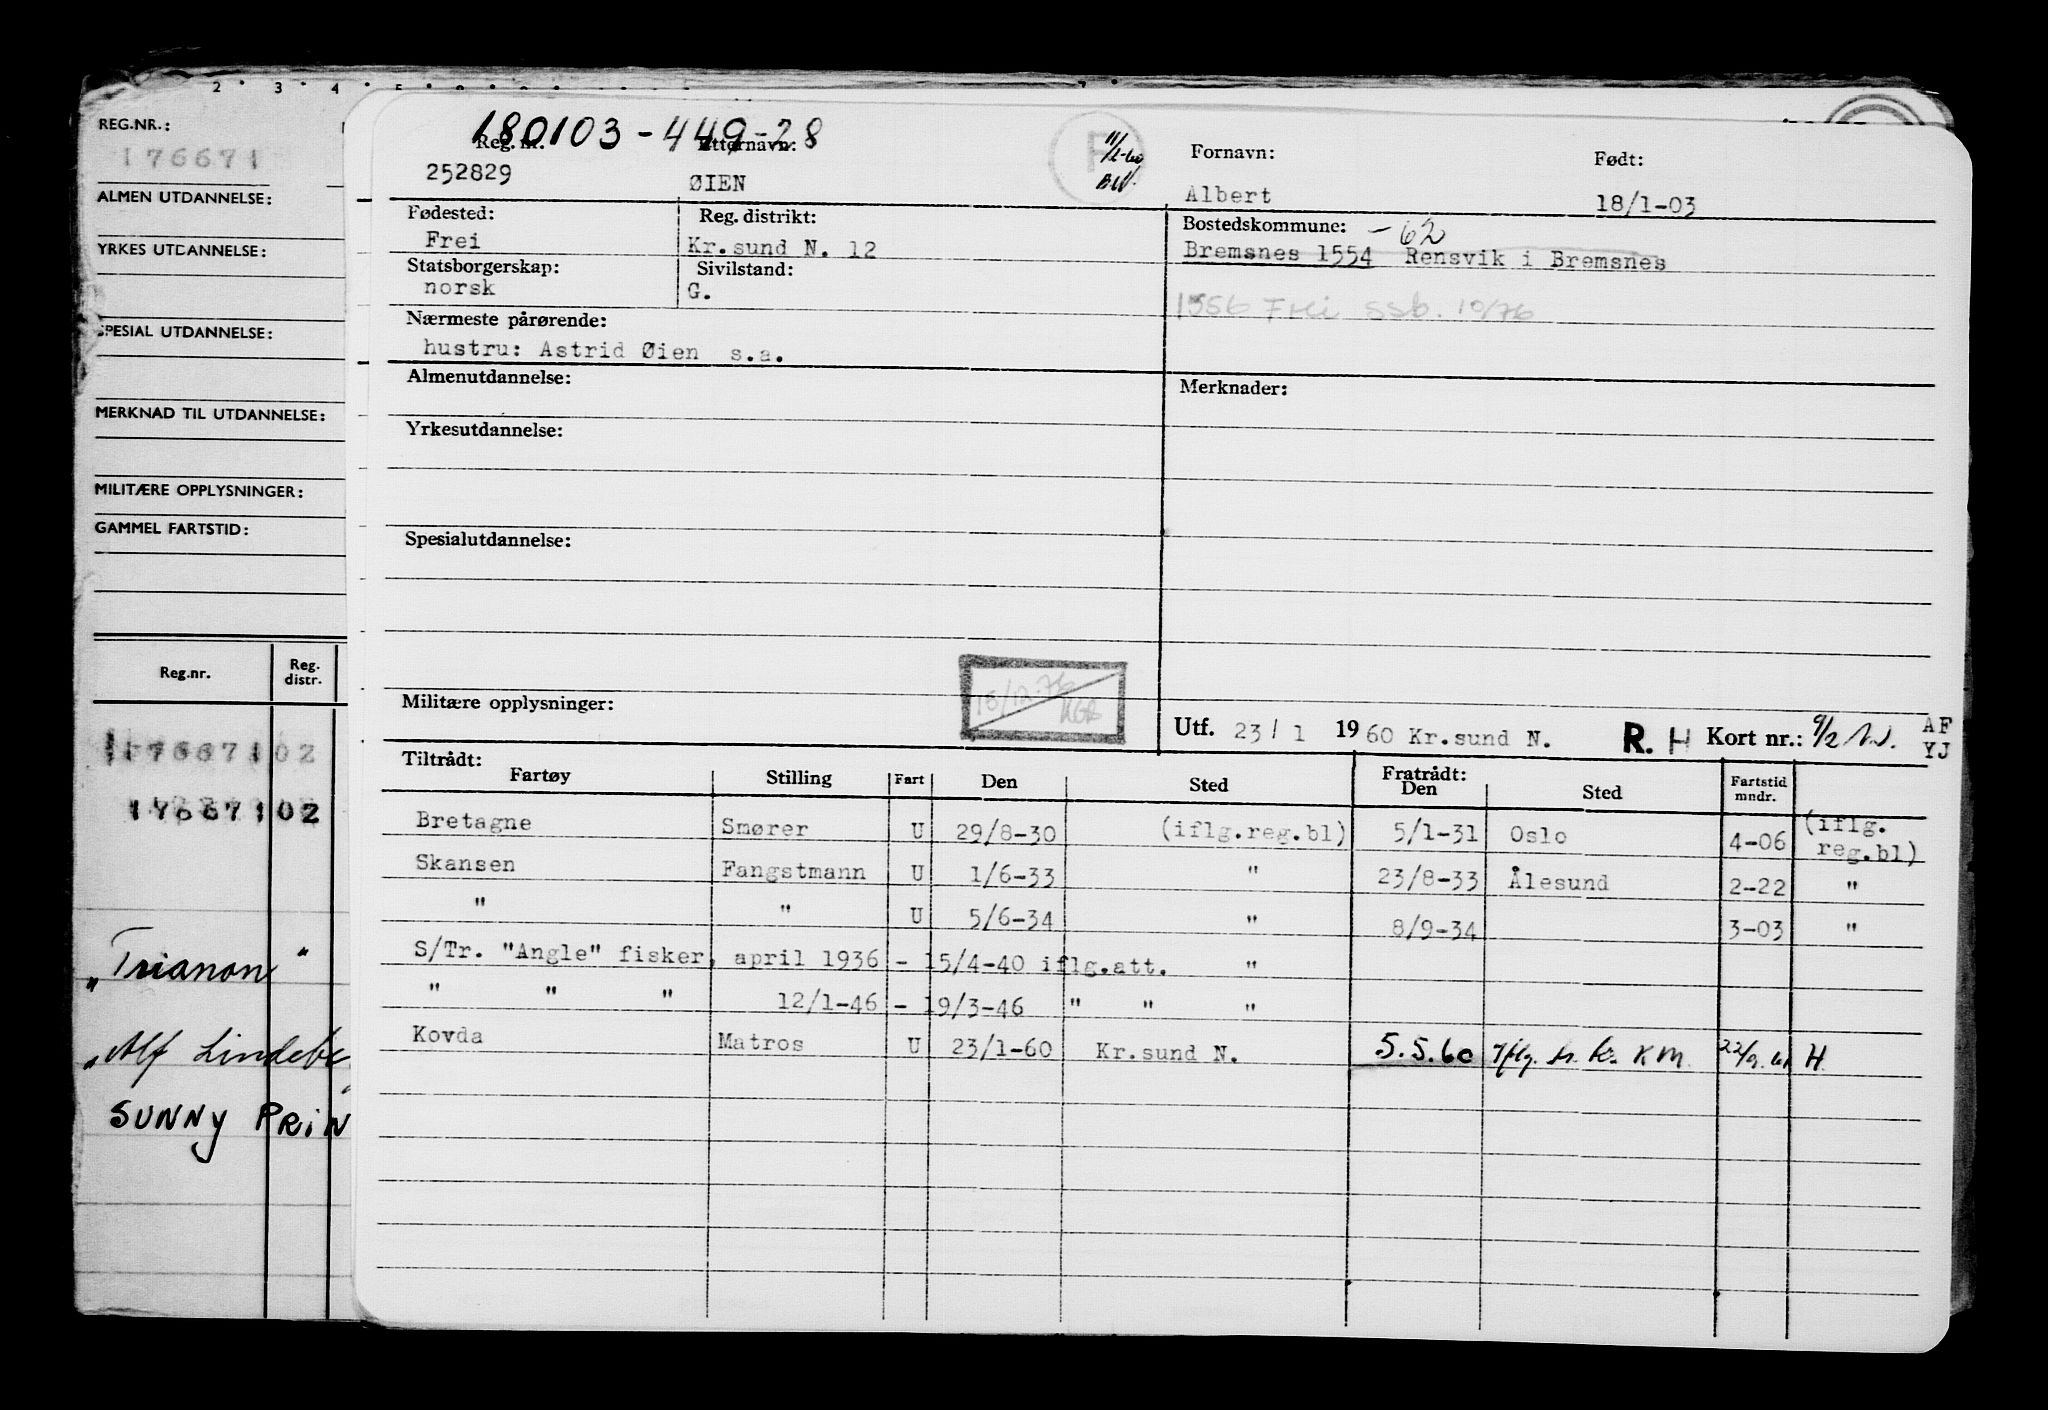 REG.NR.:
176671
ALMEN UTDANNELSE:
YRKES UTDANNELSE:
SPESIAL UTDANNELSE:
MERKNAD TIL UTDANNELSE:
MILITÆRE OPPLYSNINGER:
GAMMEL FARTSTID:
Reg.nr. Reg. distr.
17667102
17667102
"Trianon"
"Alf Lindebe
SUNNY PRIN
180103-449-28
Reg. nr. Etternavn: Fornavn: Født:
252829 ØIEN Albert 18/1-03
Fødested: Reg. distrikt: Bostedskommune: -62
Frei Kr.sund N. 12 Bremsnes 1554 Rensvik i Bremsnes
Statsborgerskap: Sivilstand:
norsk G.
1556 Frei ssb. 10/76
Nærmeste pårørende:
hustru: Astrid Øien s.a.
Almenutdannelse: Merknader:
Yrkesutdannelse:
Spesialutdannelse:
Militære opplysninger:
Utf. 23/1 1960 Kr.sund N. R. H Kort nr.: 9/2 AF
YJ
Tiltrådt: Fratrådt:
Fartøy Stilling Fart Den Sted Den Sted Fartstid mndr.
Bretagne Smører U 29/8-30 (iflg.reg.bl) 5/1-31 Oslo 4-06 (iflg. reg.bl)
Skansen Fangstmann U 1/6-33 " 23/8-33 Ålesund 2-22 "
" " U 5/6-34 " 8/9-34 3-03 "
S/Tr. "Angle" fisker, april 1936 - 15/4-40 iflg.att. "
" " " 12/1-46 - 19/3-46 " " "
Kovda Matros U 23/1-60 Kr.sund N. 5.5.60 Iflg. KM. H.